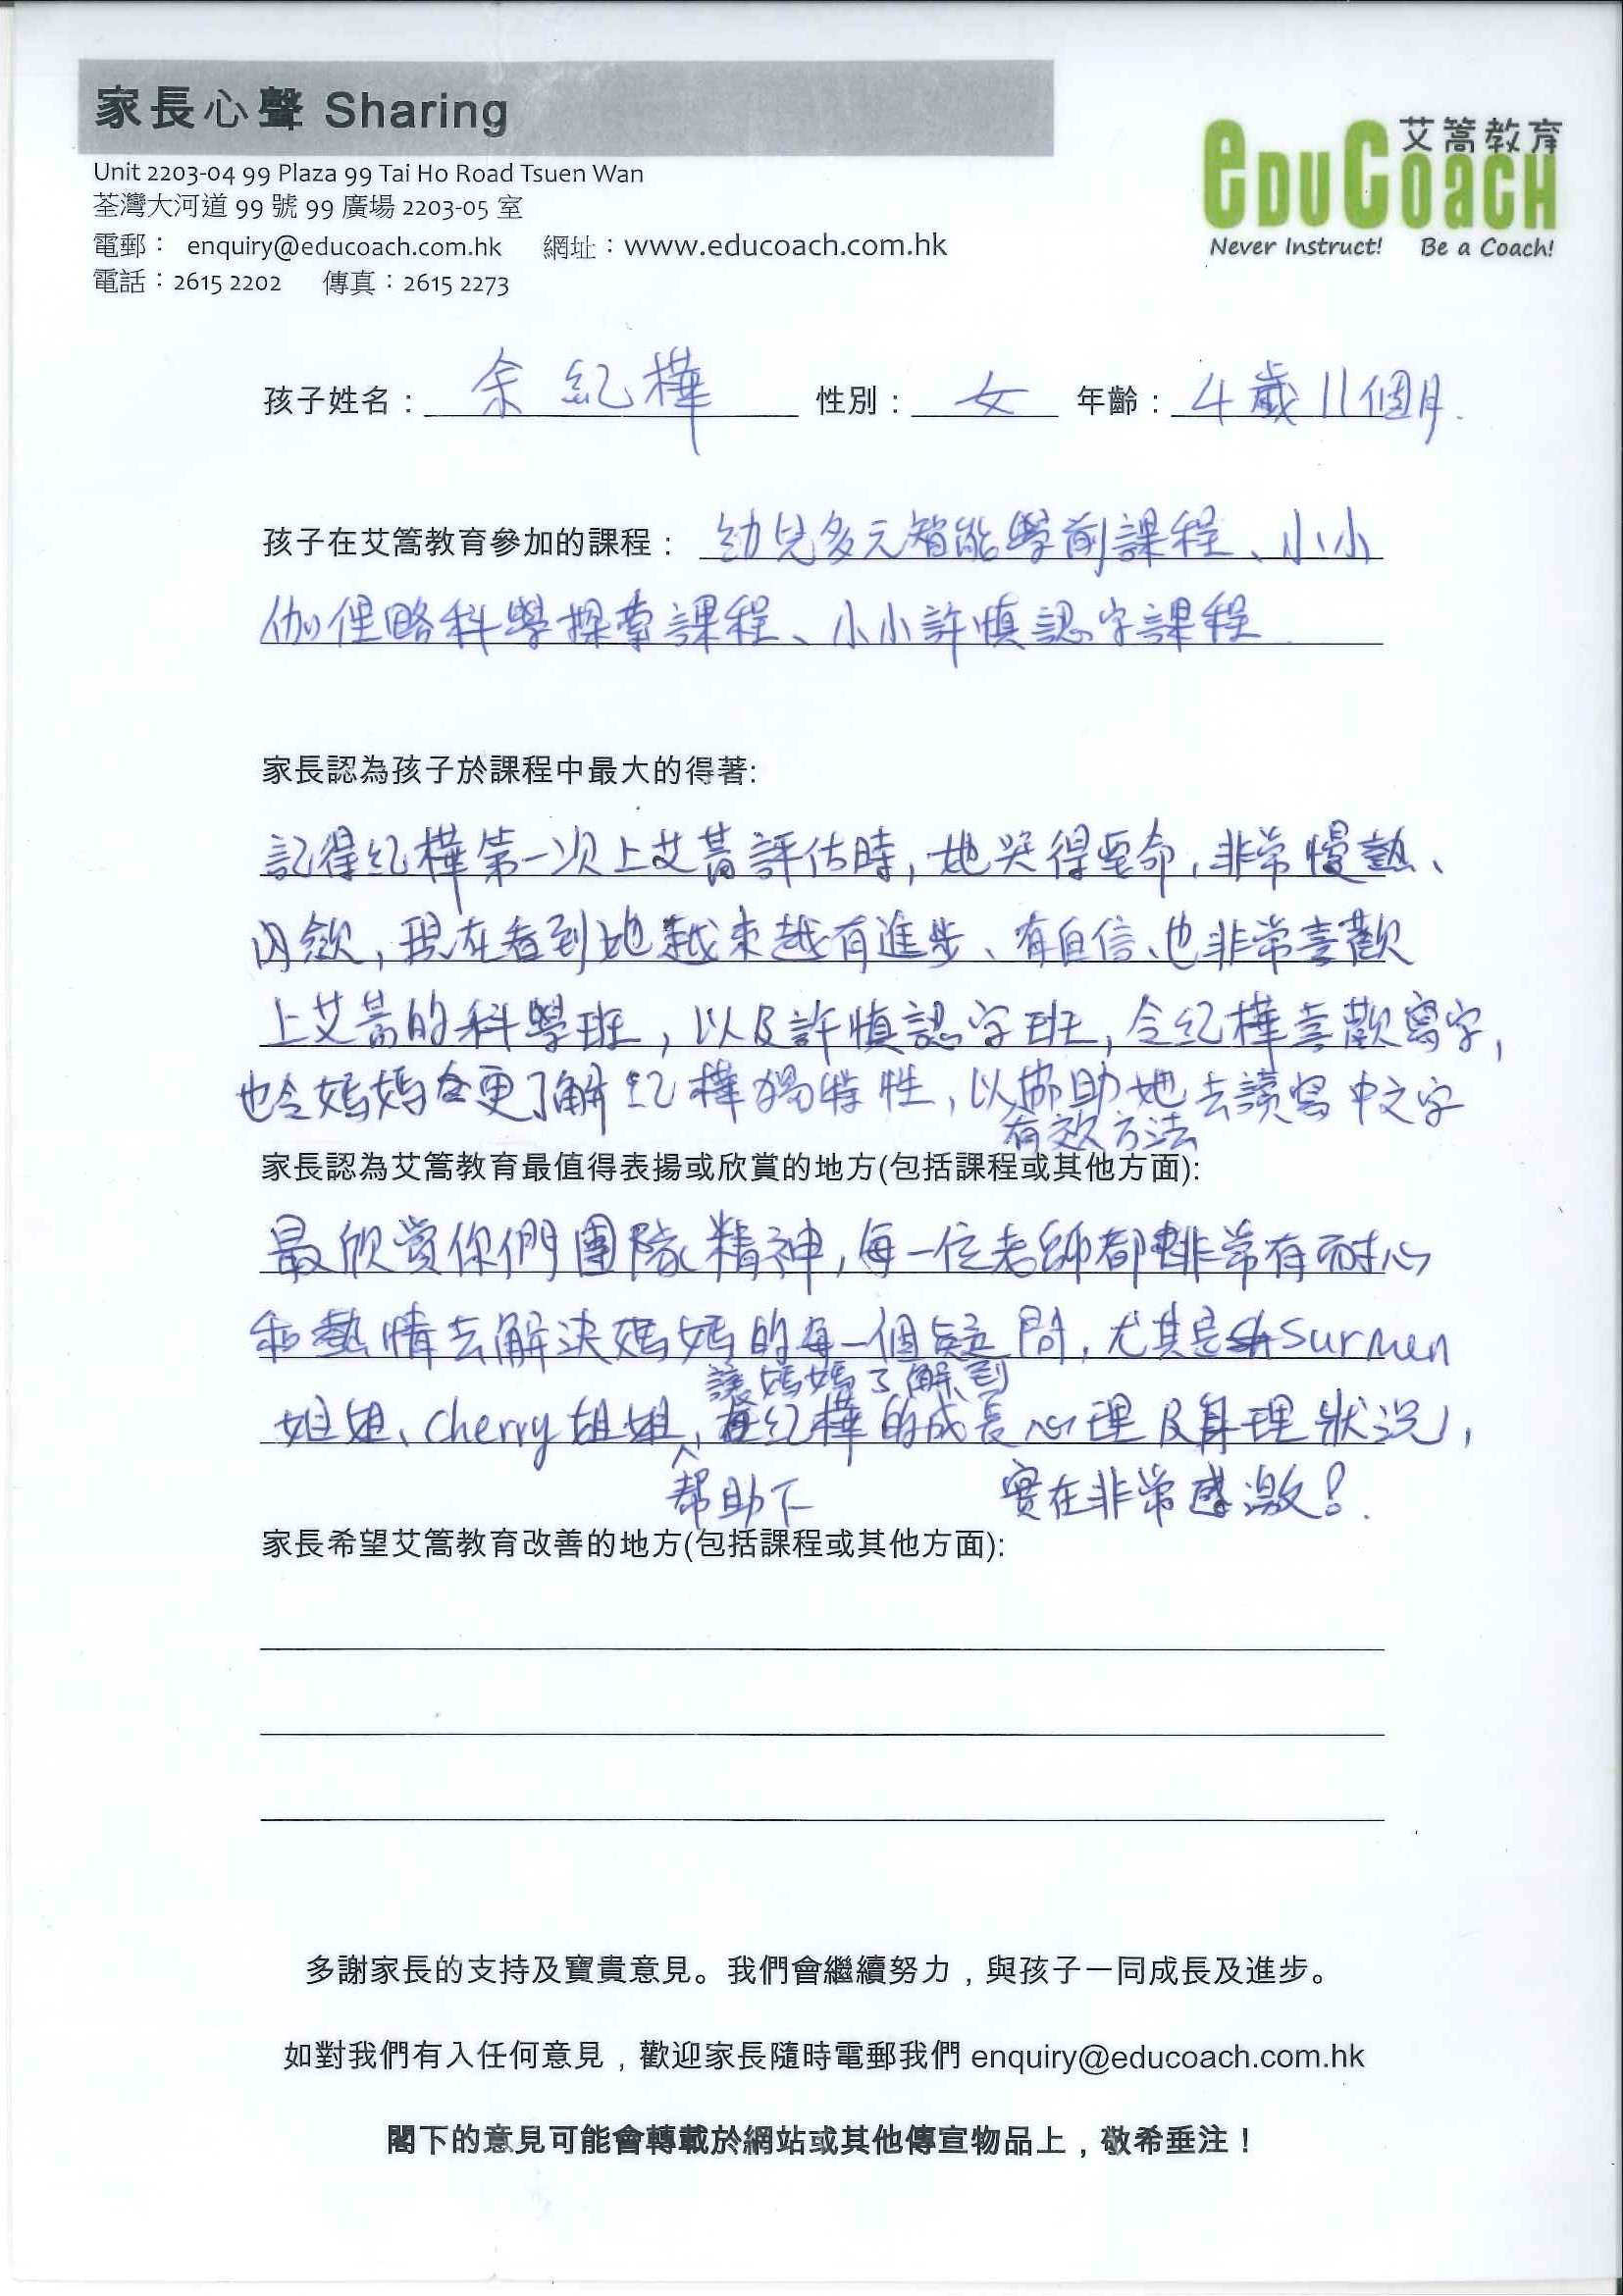 家長心聲 Sharing
Unit 2203-04 99 Plaza 99 Tai Ho Road Tsuen Wan
荃灣大河道 99 號 99 廣場 2203-05 室
電郵： enquiry@educoach.com.hk 網址：www.educoach.com.hk
電話：2615 2202 傳真：2615 2273
艾篙教育
eDUCOaCH
Never Instruct! Be a Coach!
孩子姓名：余紀樺 性別：女 年齡：4歲11個月.
孩子在艾篙教育參加的課程：幼兒多元智能學前課程、小小
伽俚略科學探索課程、小小許慎認字課程
家長認為孩子於課程中最大的得著:
記得紀樺第一次上艾蒿評估時,她哭得要命,非常慢熱、
內歛,現在看到她越來越有進步、有自信、也非常喜歡
上艾蒿的科學班,以及許慎認字班,令紀樺喜歡寫字,
也令媽媽更了解紀樺獨特性,以幫助她去讀寫中文字
有效方法
家長認為艾篙教育最值得表揚或欣賞的地方(包括課程或其他方面):
最欣賞你們團隊精神,每一位老師都非常有耐心
和熱情去解決媽媽的每一個疑問,尤其是Surmen
讓媽媽了解到
姐姐、Cherry姐姐,在紀樺的成長心理及身理狀況,
幫助下 實在非常感激!.
家長希望艾篙教育改善的地方(包括課程或其他方面):
多謝家長的支持及寶貴意見。我們會繼續努力，與孩子一同成長及進步。
如對我們有入任何意見，歡迎家長隨時電郵我們 enquiry@educoach.com.hk
閣下的意見可能會轉載於網站或其他傳宣物品上，敬希垂注！